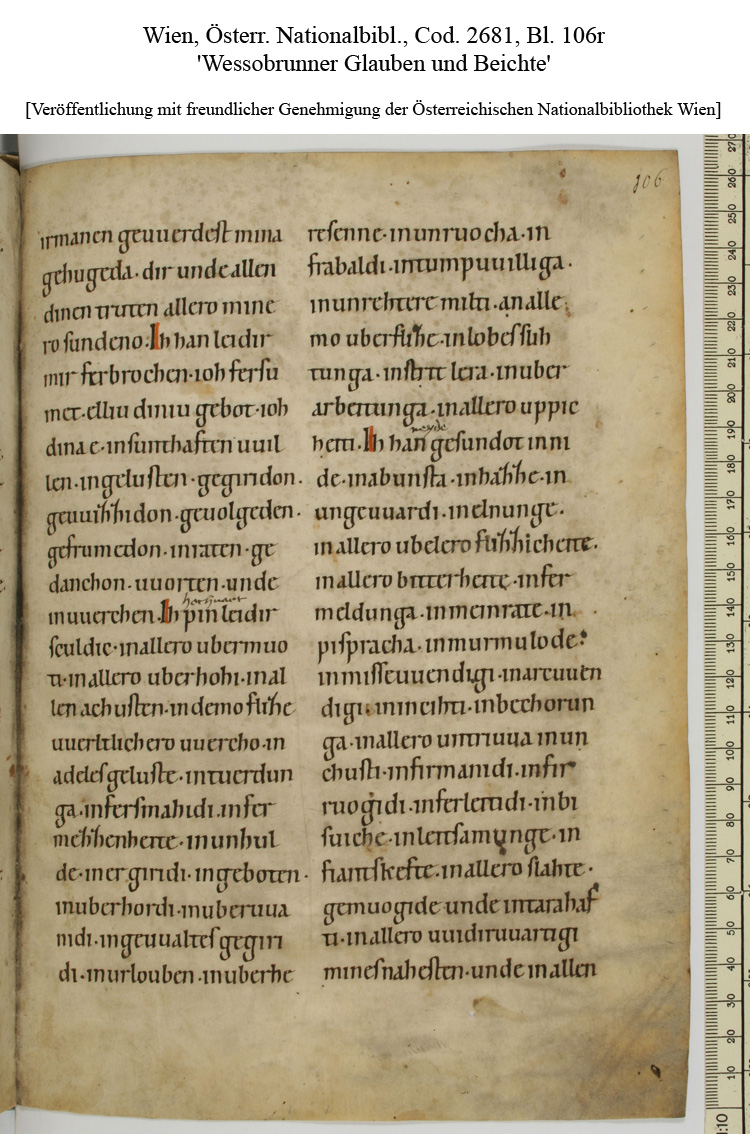 Wien, Österr. Nationalbibl., Cod. 2681, Bl. 106r
'Wessobrunner Glauben und Beichte'
[Veröffentlichung mit freundlicher Genehmigung der Österreichischen Nationalbibliothek Wien]
106
irmanen geuuerdeſt mina
gehugeda · dir unde allen
dinen truten allero mine
ro ſundeno · Ih han leidir
mir ferbrochen · ioh ferſu
met · elliu diniu gebot · ioh
dina e · in ſunthaften uuil
len · in geluſten · gegiridon ·
geuuiſſidon · geuolgeden ·
gefrumedon · in raten · ge
danchon · uuorten · unde
in uuerchen · Ih pin leidir
ſculdic · in allero ubermuo
ti · in allero uberhohi · in al
len achuſten · in demo fliſſe
uuerltlichero uuercho · in
adeleſ geluſte · in tuerdun
ga · in ferſmahidi · in fer
meſſenheite · in unhul
de · in ergiridi · in geboten ·
in uberhordi · in uberuua
nidi · in geuualteſ gegiri
di · in urlouben · in uberhe
reſenne · in unruocha · in
frabaldi · in tumpuuilliga ·
in unrehtere milti · an alle
mo uberfliſſe · in lobeſ ſuh
tunga · in ſtritt lera · in uber
arbeitunga · in allero uppic
heiti · Ih han geſundot in ni
de · in abunſta · in haſſe · in
ungeuuardi · in elnunge ·
in allero ubelero fliſſicheite ·
in allero bitterheite · in fer
meldunga · in meinrate · in
piſpracha · in murmulode ·
in miſſeuuendigi · in areuuen
digi · in incihti · in bechorun
ga · in allero untriuua in un
chuſti · in firmanidi · in fir
ruogidi · in ferleitidi · in bi
ſuiche · in leitſamunge · in
fiantſkefte · in allero ſlahte ·
gemuogide unde in tarahaf
ti · in allero uuidiruuartigi
mineſ naheſten · unde in allen